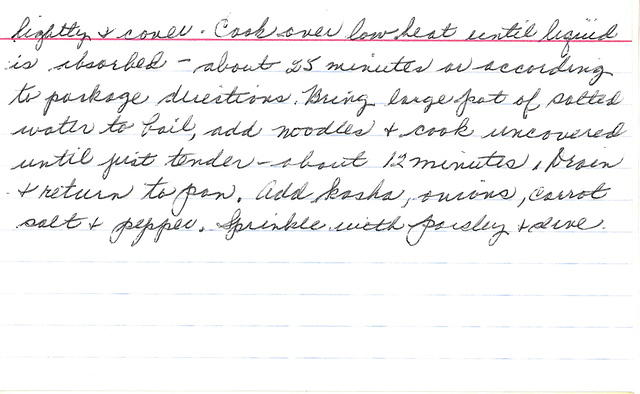 lightly & cover. Cook over low heat until liquid
is absorbed - about 25 minutes or according
to package directions. Bring large pot of salted
water to boil, add noodles & cook uncovered
until just tender - about 12 minutes. Drain
& return to pan. Add kasha, onions, carrot
salt & pepper. Sprinkle with parsley & serve.